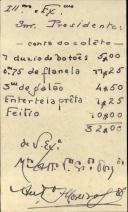 Ill.mo e Ex.mo
Snr. Presidente:
- conta do colete -
7 duzia de botões 5$00
0,75 de flanela 11$25
3m de galão 4$50
Entertela prêta 1$25
Feitio 10$00
32$00
de V. Ex.ª